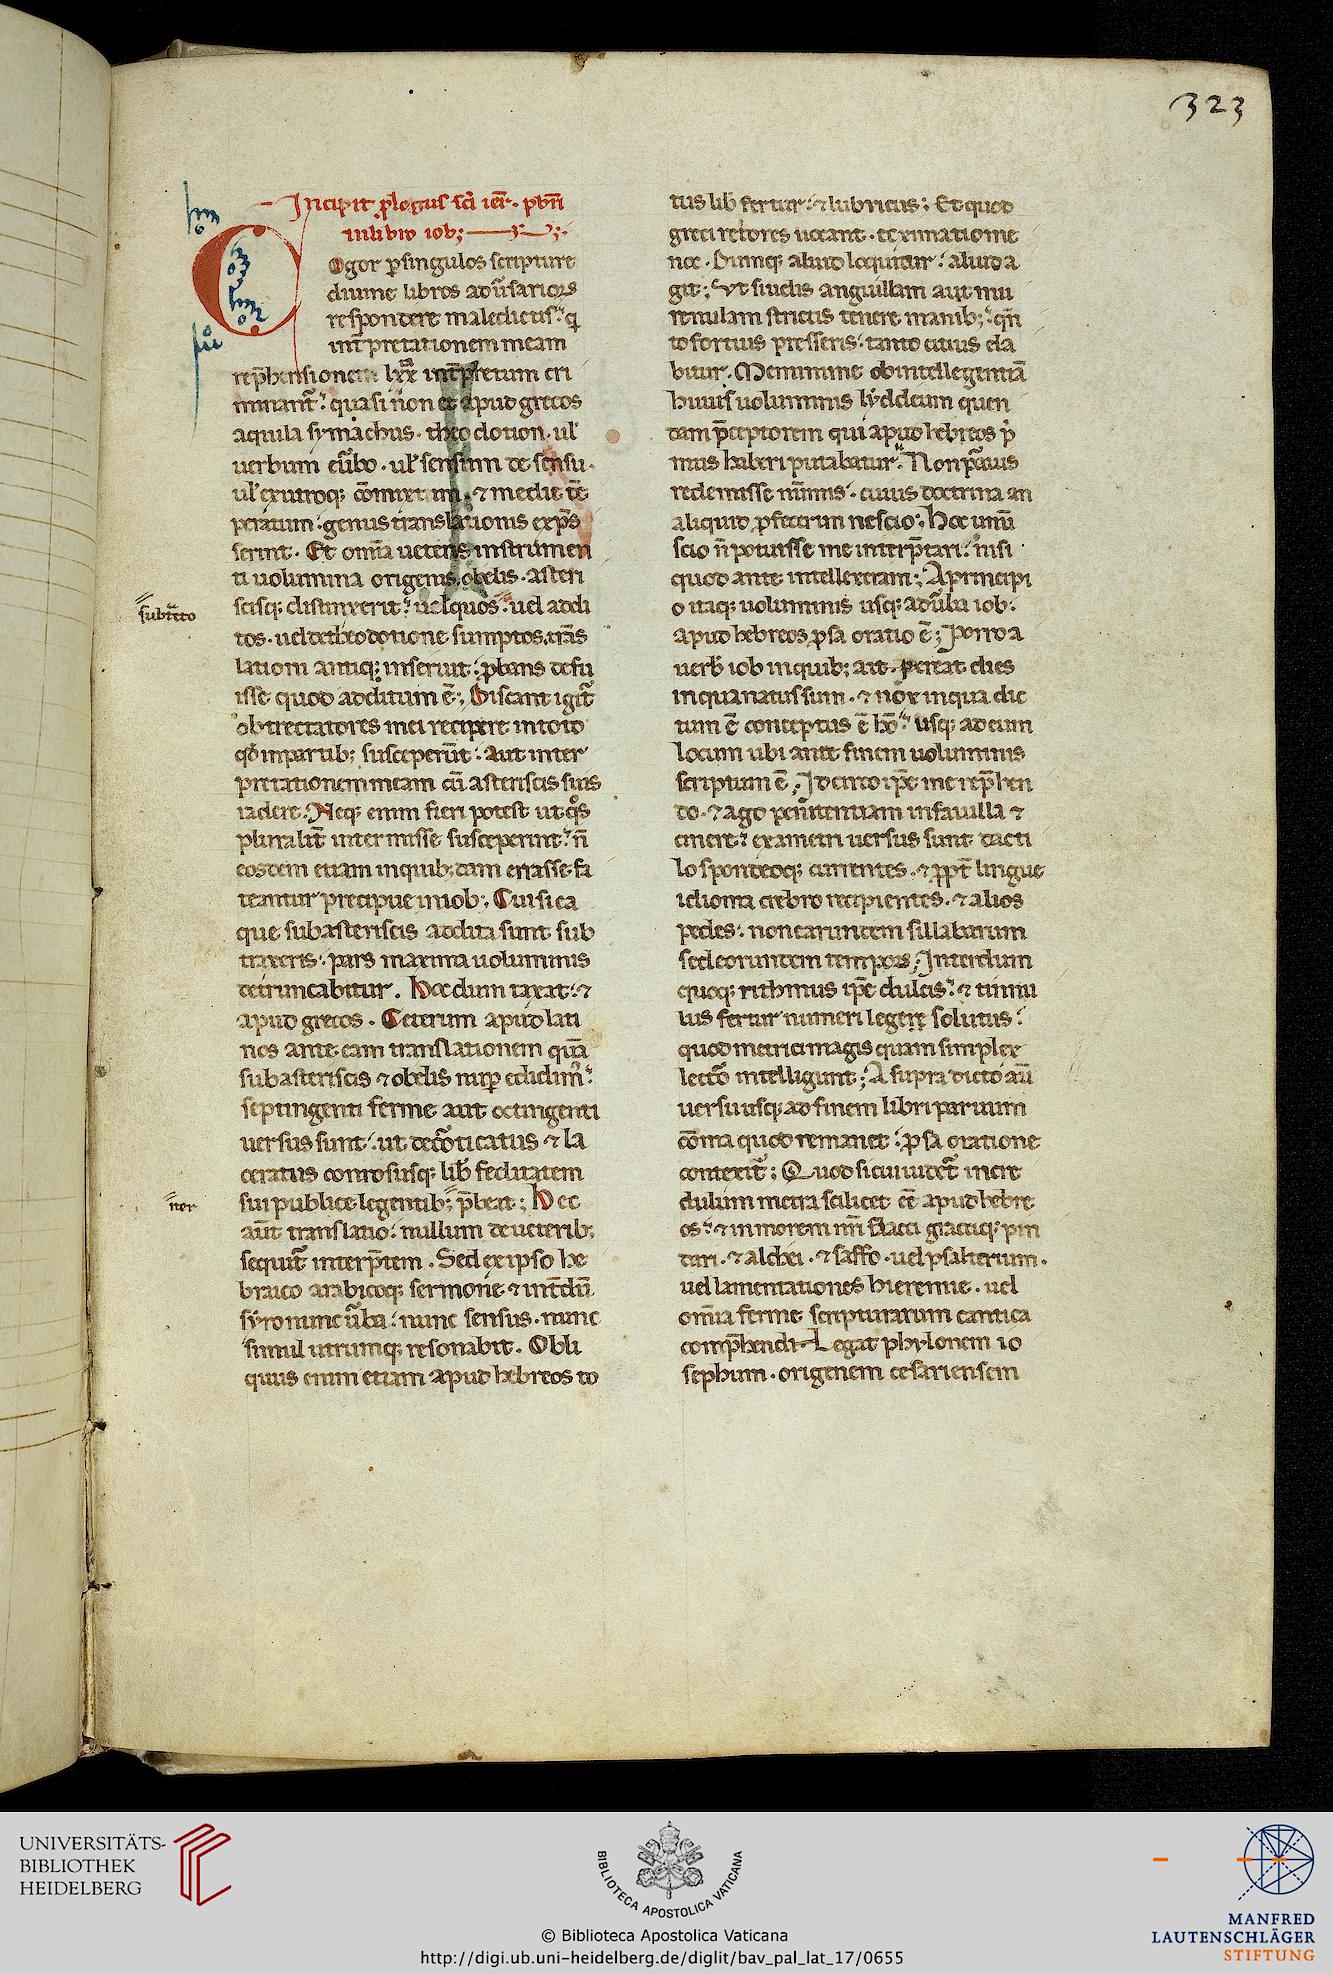 323
Incipit ꝓlogus sci ier̄. pb̄ri
in libro iob;
Cogor ꝑ singulos scripture
diuine libros adūsariorꝫ
respondere maledictis. q
int̄pretationem meam
rep̄hensionem lxx int̄pretum cri
minant̄. quasi non et apud grecos
aquila symachus. theodotion. ul'
uerbum eūbo. ul' sensum de sensu.
ul' ex utroqꝫ cōmixtum. ⁊ medie tē
peratum. genus translationis exp̄s
serint. Et omīa ueteris instrumen
ti uolumina origenis obelis. asteri
scisqꝫ distinxerit. uel quos. uel addi
tos. uel de theodotione sumptos. trās
lationi antiqꝫ inseruit. ꝓbans defu
isse quod additum ē; Discant igit̄
obtrectatores mei recipere in toto
qd in partibꝫ susceperūt. aut inter
pretationem meam cū asteriscis suis
radere. Neqꝫ enim fieri potest ut qͦs
pluralit̄ intermisse susceperint. n̄
eosdem etiam in quibꝫdam errasse fa
teantur precipue in iob; Cui si ea
que sub asteriscis addita sunt sub
traxeris. pars maxima uoluminis
detruncabitur. Hoc dum taxat. ⁊
apud grecos. Ceterum apud lati
nos ante eam translationem quā
sub asteriscis ⁊ obelis nuꝑ edidim̄.
septingenti ferme aut octingenti
uersus sunt. ut decorticatus ⁊ la
ceratus corrosusqꝫ lib' feditatem
sui publice legentibꝫ p̄beat; Hec
aūt translatio. nullum de ueteribꝫ
sequit̄ interp̄tem. Sed ex ipso he
braico arabicoqꝫ sermone ⁊ int̄dū
syro nunc ūba. nunc sensus. nunc
simul utrumqꝫ resonabit. Obli
quus enim etiam apud hebreos to
subtrͨto
ner
tus lib' fertur. ⁊ lubricus; Et quod
greci retores uocant. ecxinatiome
noc. Dumqꝫ aliud loquitur. aliud a
git; Ut si uelis anguillam aut mu
renulam strictis tenere manibꝫ. qn̄
to fortius presseris. tanto citius ela
bitur. Memimine ob intellegentiā
huius uoluminis lyddeum quen
dam p̄ceptorem qui apud hebreos p̄
mus haberi putabatur. Non paruis
redemisse nūmis. cuius doctrina an
aliquid ꝓfecerim nescio; Hoc unū
scio n̄ potuisse me interp̄tari. nisi
quod ante intellexeram; A principi
o itaqꝫ uoluminis usqꝫ ad ūba iob.
apud hebreos ꝓsa oratio ē; Porro a
uerb' iob in quibꝫ ait. pereat dies
in qua natus sum. ⁊ nox in qua dic
tum ē conceptus ē hō. usqꝫ ad eum
locum ubi ante finem uoluminis
scriptum ē; Idcirco ip̄e me rep̄hen
do. ⁊ ago penitentiam in fauilla ⁊
cinere. exametri uersus sunt dacti
lo spondeoqꝫ currentes. ⁊ ꝓpt̄ lingue
idioma crebro recipientes. ⁊ alios
pedes. non earundem sillabarum
sed eorundem temporꝫ; Interdum
quoqꝫ rithmus ip̄e dulcis. ⁊ tinnu
lus fertur numeri legere solutus.
quod metrici magis quam simplex
lector intelligunt; A supradicto aū
uersu usqꝫ ad finem libri paruum
cōma quod remanet. ꝓsa oratione
contexit̄; Quod si cui uidet̄ incre
dulum metra scilicet eē apud hebre
os. ⁊ in morem nr̄i flacci greciqꝫ pin
dari. ⁊ alchei. ⁊ saffo. uel psalterium.
uel lamentationes hieremie. uel
omīa ferme scripturarum cantica
comp̄hendi. Legat phylonem io
sephum. origenem cesariensem
UNIVERSITÄTS-
BIBLIOTHEK
HEIDELBERG
BIBLIOTECA APOSTOLICA VATICANA
© Biblioteca Apostolica Vaticana
http://digi.ub.uni-heidelberg.de/diglit/bav_pal_lat_17/0655
MANFRED
LAUTENSCHLÄGER
STIFTUNG